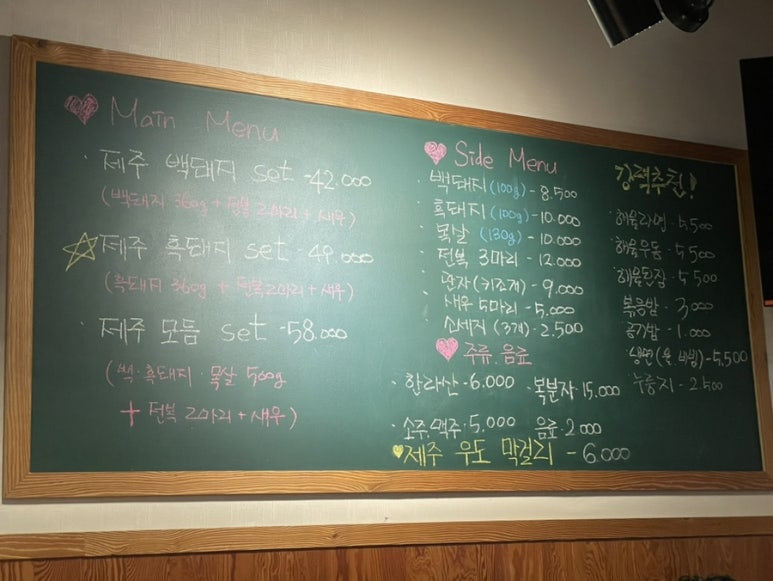 Main Menu
· 제주 백돼지 set - 42.000
(백돼지 360g + 전복 2마리 + 새우)
제주 흑돼지 set - 49.000
(흑돼지 360g + 전복 2마리 + 새우)
· 제주 모듬 set - 58.000
(백·흑돼지·목살 560g
+ 전복 2마리 + 새우)
Side Menu
· 백돼지 (100g) - 8.500
· 흑돼지 (100g) - 10.000
· 목살 (130g) - 10.000
· 전복 3마리 - 12.000
· 관자 (키조개) - 9.000
· 새우 5마리 - 5.000
· 소세지 (3개) - 2.500
주류.음료
· 한라산 - 6.000 · 복분자 - 15.000
· 소주.맥주 · 5.000 음료 · 2.000
제주 우도 막걸리 - 6.000
강력추천!
· 해물라면 - 5,500
· 해물우동 - 5,500
· 해물된장 - 5,500
볶음밥 - 3,000
공기밥 - 1.000
냉면 (물, 비빔) - 5,500
누룽지 - 2.500